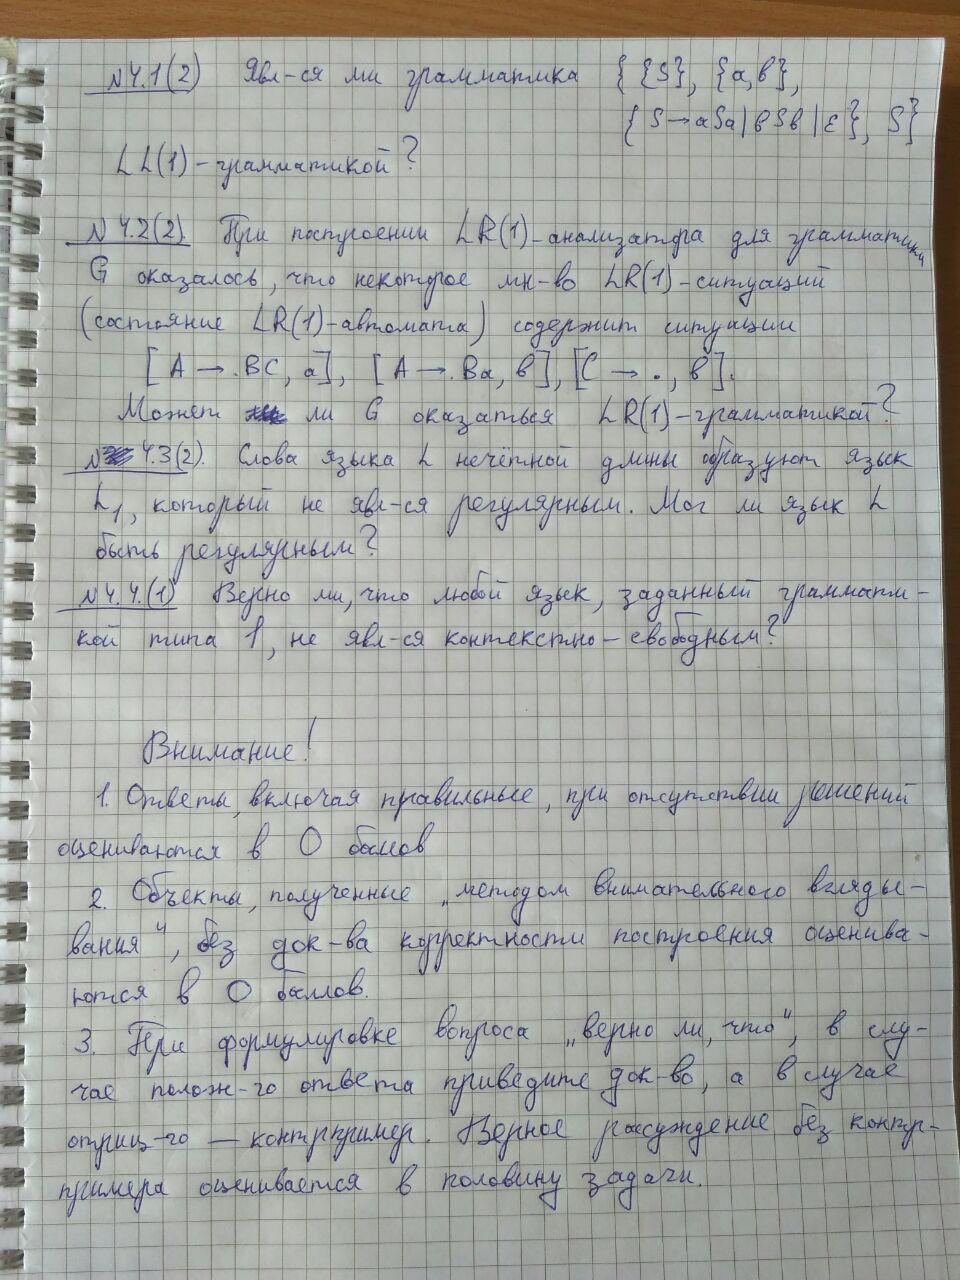 N 4.1(2) Явл-ся ли грамматика { {S}, {a,b},
{ S→aSa | bSb | ε}, S}
LL(1)-грамматикой?
N 4.2(2). При построении LR(1)-анализатора для грамматики
G оказалось, что некоторое мн-во LR(1)-ситуаций
(состояние LR(1)-автомата) содержит ситуации
[A → .BC, a], [A → .Ba, b], [C → ., b].
Может ли G оказаться LR(1)-грамматикой?
N 4.3(2). Слова языка L нечётной длины образуют язык
L₁, который не явл-ся регулярным. Мог ли язык L
быть регулярным?
N 4.4.(1) Верно ли, что любой язык, заданный граммати-
кой типа 1, не явл-ся контекстно-свободным?
Внимание!
1. Ответы, включая правильные, при отсутствии решений
оцениваются в 0 баллов
2. Объекты, полученные „методом внимательного вгляды-
вания", без док-ва корректности построения оценива-
ются в 0 баллов.
3. При формулировке вопроса „верно ли, что", в слу-
чае полож-го ответа приведите док-во, а в случае
отриц-го — контрпример. Верное рассуждение без контр-
примера оценивается в половину задачи.